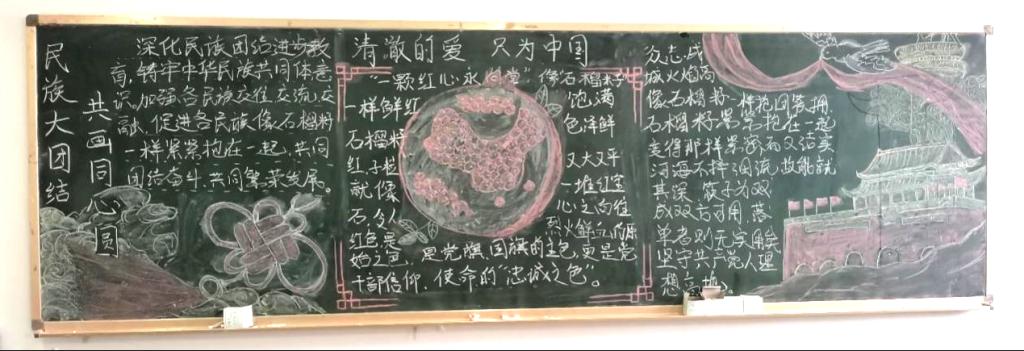 民族大团结
共画同心圆
深化民族团结进步教
育,铸牢中华民族共同体意
识,加强各民族交往、交流、交
融,促进各民族像石榴籽
一样紧紧抱在一起,共同
团结奋斗、共同繁荣发展。
清澈的爱 只为中国
"一颗红心永向党" 像石榴籽
一样鲜红 饱满
石榴籽 色泽鲜
红,子粒 又大又平
就像 一堆红宝
石,令人 心之向往
红色是 烈火鲜血
始之色, 是党旗、国旗的主色,更是党
干部信仰、使命的"忠诚之色"。
众志成
城火焰高
像石榴籽一样抱团簇拥
石榴籽紧紧抱在一起
变得那样紧密而又结实
河海不择细流,故能就
其深 筷子为双
成双方可用,落
单者则无实用
坚守共产党人理
想高地。